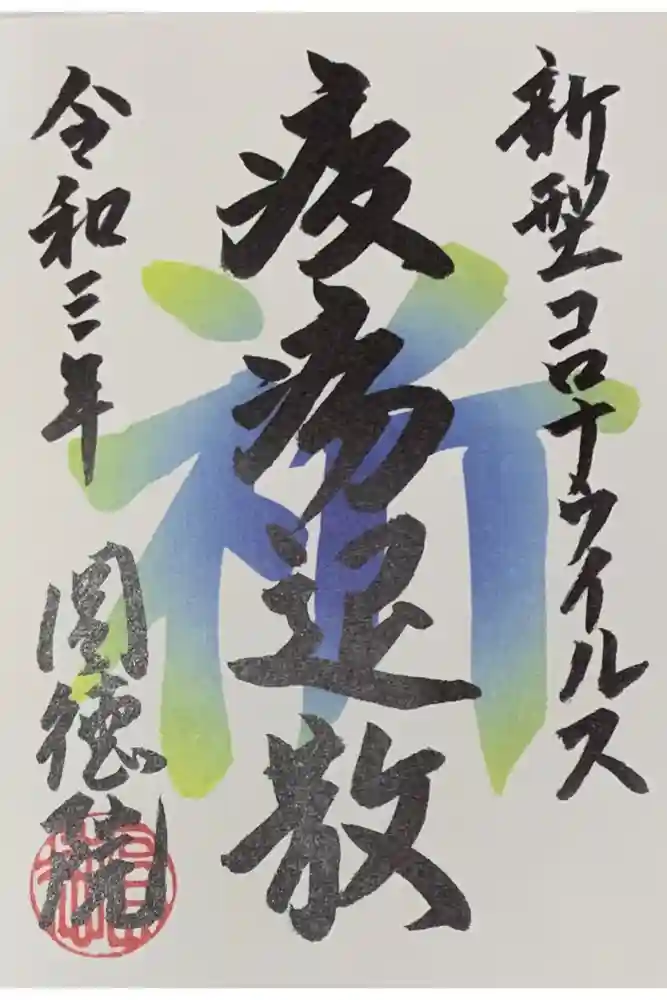 新型コロナウイルス
疫病退散
祈
令和三年
圓徳院